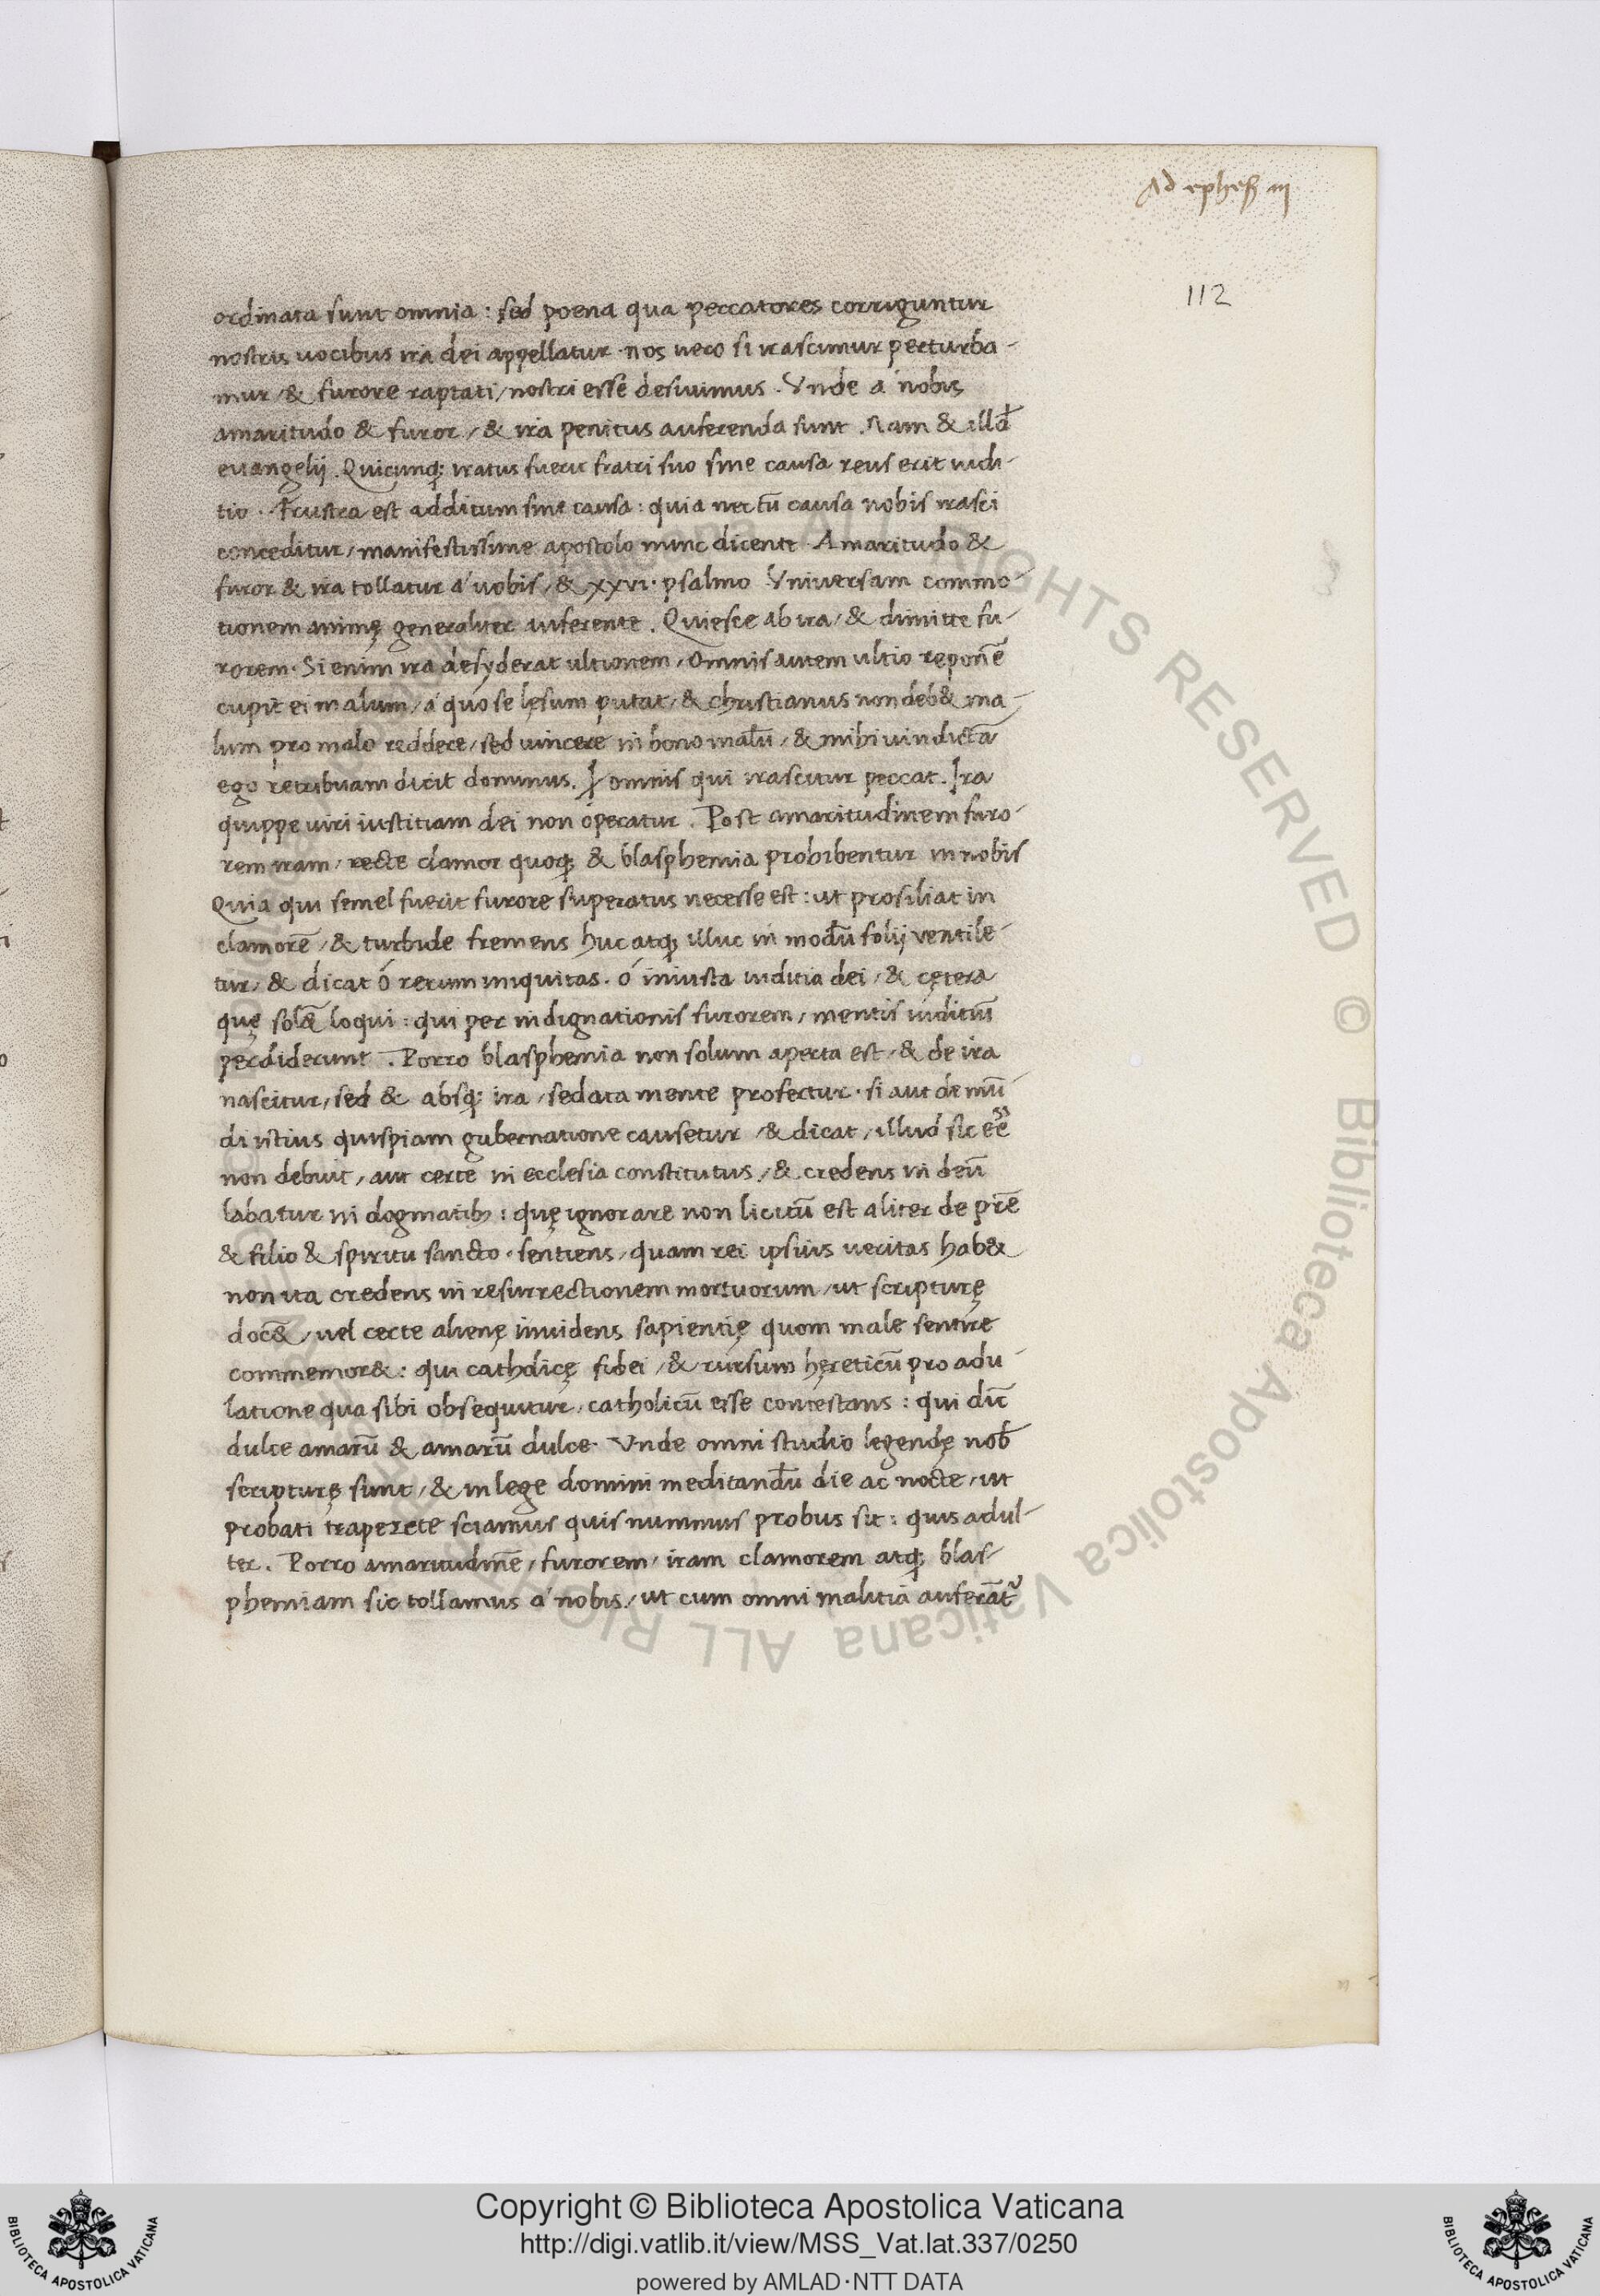 Ad ephes̄ iii
112
ordinata sunt omnia : sed poena qua peccatores corriguntur
nostris uocibus ira dei appellatur · nos uero si irascimur perturba-
mur / & furore raptati / nostri esse desiuimus . Vnde á nobis
amaritudo & furor / & ira penitus auferenda sunt . Nam & illđ
euangelij . Quicunq; iratus fuerit fratri suo sine causa reus erit iudi-
tio . Frustra est additum sine causa : quia nec cū causa nobis irasci
conceditur / manifestissime apostolo nunc dicente . Amaritudo &
furor & ira tollatur á uobis / & xxvi · psalmo Vniuersam commo-
tionem animę generaliter auferente . Quiesce ab ira / & dimitte fu-
rorem . Si enim ira desyderat ultionem / omnis autem ultio reponē
cupit ei malum / á quo se lęsum putat / & christianus non deb& ma-
lum pro malo reddere / sed uincere in bono malū / & mihi uindictā
ego retribuam dicit dominus . omnis qui irascitur peccat . Ira
quippe uiri iustitiam dei non operatur . Post amaritudinem furo-
rem iram / recte clamor quoq; & blasphemia prohibentur in nobis
Quia qui semel fuerit furore superatus necesse est : ut prosiliat in
clamorē / & turbide fremens huc atq; illuc in modū folij ventile-
tur / & dicat ó rerum iniquitas . ó iniusta iuditia dei / & cętera
quę sol&̄ loqui : qui per indignationis furorem / mentis iuditiū
perdiderunt . Porro blasphemia non solum aperta est / & de ira
nascitur / sed & absq; ira / sedata mente profertur · si aut de mū-
di istius quispiam gubernatione causetur / & dicat / illud sic eē
non debuit / aut certe in ecclesia constitutus / & credens in deū
labatur in dogmatib; : quę ignorare non licitū est aliter de prē
& filio & spiritu sancto · sentiens / quam rei ipsius ueritas hab&
non ita credens in resurrectionem mortuorum / ut scripturę
doc&̄ / uel certe alienę inuidens sapientię quom male sentire
commemor& : qui catholicę fidei / & rursum hęreticū pro adu-
latione qua sibi obsequitur / catholicū esse contestans : qui dīc
dulce amarū & amarū dulce · Vnde omni studio legendę nob̄
scripturę sunt / & in lege domini meditandū die ac nocte / ut
probati trapezete sciamus quis nummus probus sit : quis adul-
ter . Porro amaritudinē / furorem / iram clamorem atq; blas-
phemiam sic tollamus á nobis / ut cum omni malitia auferāt᷑
Copyright © Biblioteca Apostolica Vaticana
http://digi.vatlib.it/view/MSS_Vat.lat.337/0250
powered by AMLAD·NTT DATA